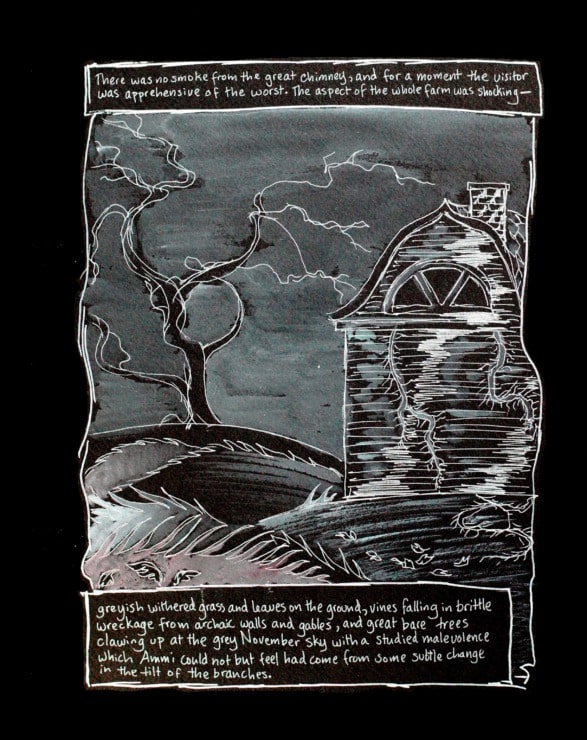 There was no smoke from the great chimney, and for a moment the visitor
was apprehensive of the worst. The aspect of the whole farm was shocking—
greyish withered grass and leaves on the ground, vines falling in brittle
wreckage from archaic walls and gables, and great bare trees
clawing up at the grey November sky with a studied malevolence
which Ammi could not but feel had come from some subtle change
in the tilt of the branches.